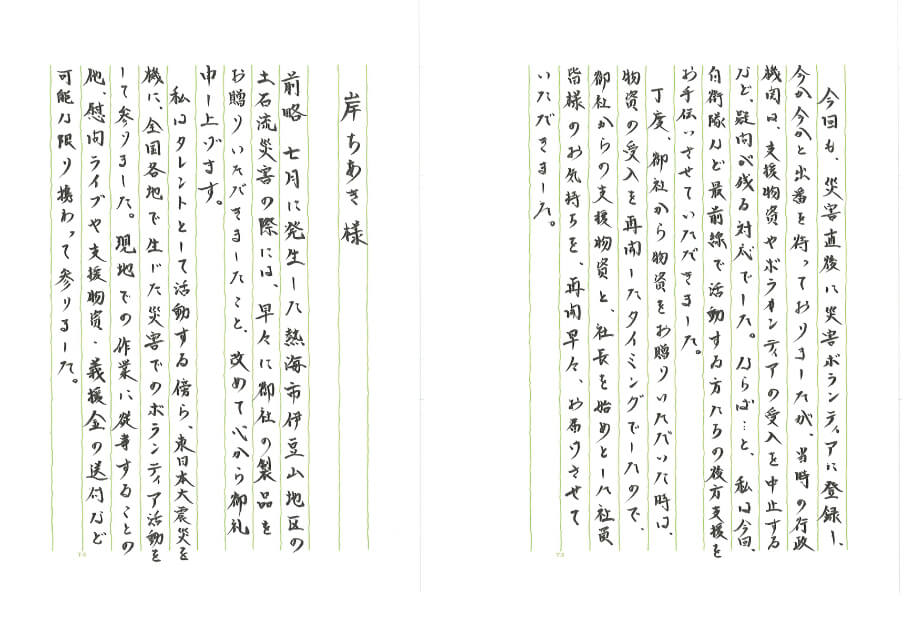 岸ちあき様
前略 七月に発生した熱海市伊豆山地区の
土石流災害の際には、早々に御社の製品を
お贈りいただきましたこと、改めて心から御礼
申し上げます。
私はタレントとして活動する傍ら、東日本大震災を
機に、全国各地で生じた災害でのボランティア活動を
して参りました。現地での作業に従事することの
他、慰問ライブや支援物資・義援金の送付など
可能な限り携わって参りました。
今回も、災害直後に災害ボランティアに登録し、
今か今かと出番を待っておりましたが、当時の行政
機関は、支援物資やボランティアの受入を中止する
など、疑問が残る対応でした。ならば…と、私は今回、
自衛隊など最前線で活動する方たちの後方支援を
お手伝いさせていただきました。
丁度、御社から物資をお贈りいただいた時は、
物資の受入を再開したタイミングでしたので、
御社からの支援物資と、社長を始めとした社員
皆様のお気持ちを、再開早々、お届けさせて
いただきました。